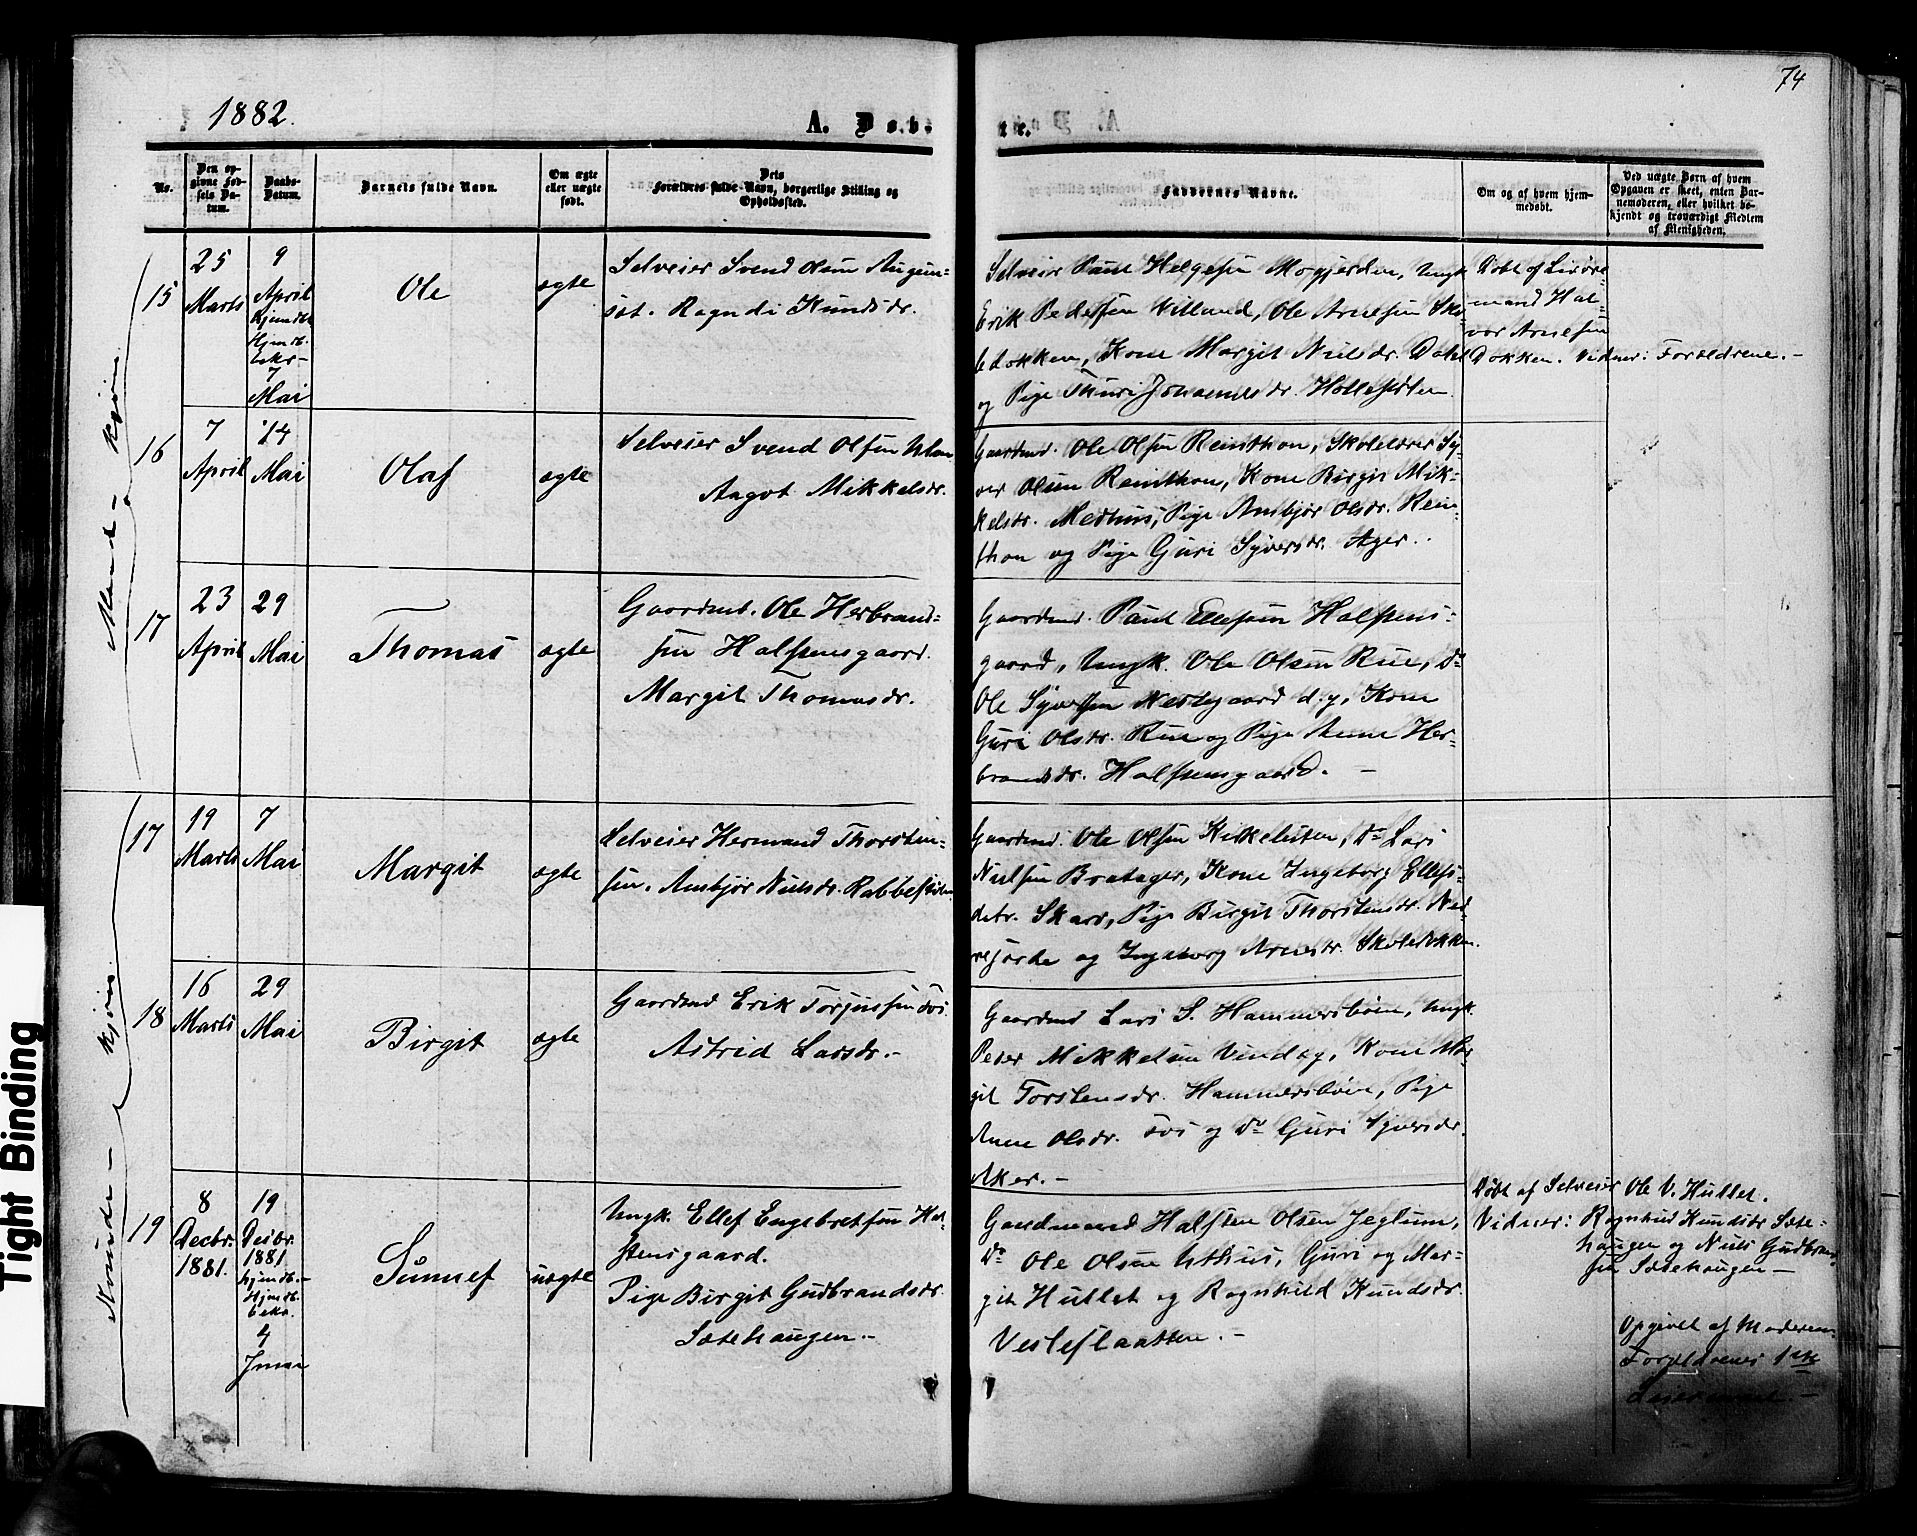 74
1882.
A. Døbte.
No.
Den opgivne Fødsels Datum.
Daabs-Datum.
Barnets fulde Navn.
Om ægte eller uægte født.
Dets Forældres fulde Navn, borgerlige Stilling og Opholdssted.
Faddernes Navne.
Om og af hvem hjemmedøbt.
Ved uægte Børn af hvem Opgaven er skeet, enten Barnemoderen, eller hvilket bekjendt og troværdigt Medlem af Menigheden.
Mand-kjøn
15
25
Marts
9
April
Hjemdb.
7
Mai
Ole
ægte
Selveier Svend Olsen
Ragndi Knudsdr.
Selveier Paul Helgesen Mogjerden, Ungk
Erik Pedersen Villand, Ole Arnesen Sko-
ledokken, Kone Margit Nielsdr.
og Pige Thuri
Døbt af
mand Hal-
vor Arnesen
Dokken. Vidner: Forældrene.-
16
7
April
14
Mai
Olaf
ægte
Selveier Svend Olsen
Aagot Mikkelsdr.
Gaardmd. Ole Olsen Reinthon, Skolelærer Sy-
ver Olsen Reinthon, Kone Birgit Mik-
kelsdr. Medhus, Pige Ambjør Olsdr. Rein-
thon og Pige Guri Syversdr. Ager.
17
23
April
29
Mai
Thomas
ægte
Gaardmd. Ole Herbrand-
sen Halstensgaard.
Margit Thomasdr.
Gaardmd. Paul Ellefsen Halstens-
gaard, Ungk. Ole Olsen Rue, Do
Ole Syversen Nestegaard d.y, Kone
Guri Olsdr. Rue og Pige Anne Her-
brandsdr. Halstensgaard. -
Kvinde-kjøn
17
19
Marts
7
Mai
Margit
ægte
Selveier Hermand Thorsten-
sen. Ambjør Nielsdr.
Gaardmd. Ole Olsen Do Lars
Nielsen Bratager, Kone Ingeborg Ellefs-
datr. Skaro, Pige Birgit Thorstensdr. Ned-
rejorde og Ingeborg Arnesdr. Skoledokken.
18
16
Marts
29
Mai
Birgit
ægte
Gaardmd Erik Torjussen
Astrid Larsdr.-
Gaardmd Lars S. Hammersbøen, Ungk.
Peder Mikkelsen Kone Mar-
git Torstensdr. Hammersbøen, Pige
Anne Olsdr. og Do Guri Syversdr.
Aker.-
19
8
Decbr.
1881.
19
Decbr.
1881
hjemdb.-
4
Juni
Sünnef
uægte
Ungk. Ellef Engebretsen Hal-
stensgaard.
Pige Birgit Gudbrandsdr.
Sætehaugen.-
Gaardmand Halsten Olsen Jeglum,
Do Ole Olsen Uthus, Guri og Mar-
git Hullet og Ragnhild Knudsdr.
Vesleslaatten.-
Døbt af Selveier Ole V. Hullet.
Vidner: Ragnhild Knudsdr Sæte-
haugen og Niels Gudbrand-
sen Sætehaugen-
Opgivet af Moderen.
Forældrenes 1ste
Leiermaal.-
Tight Binding